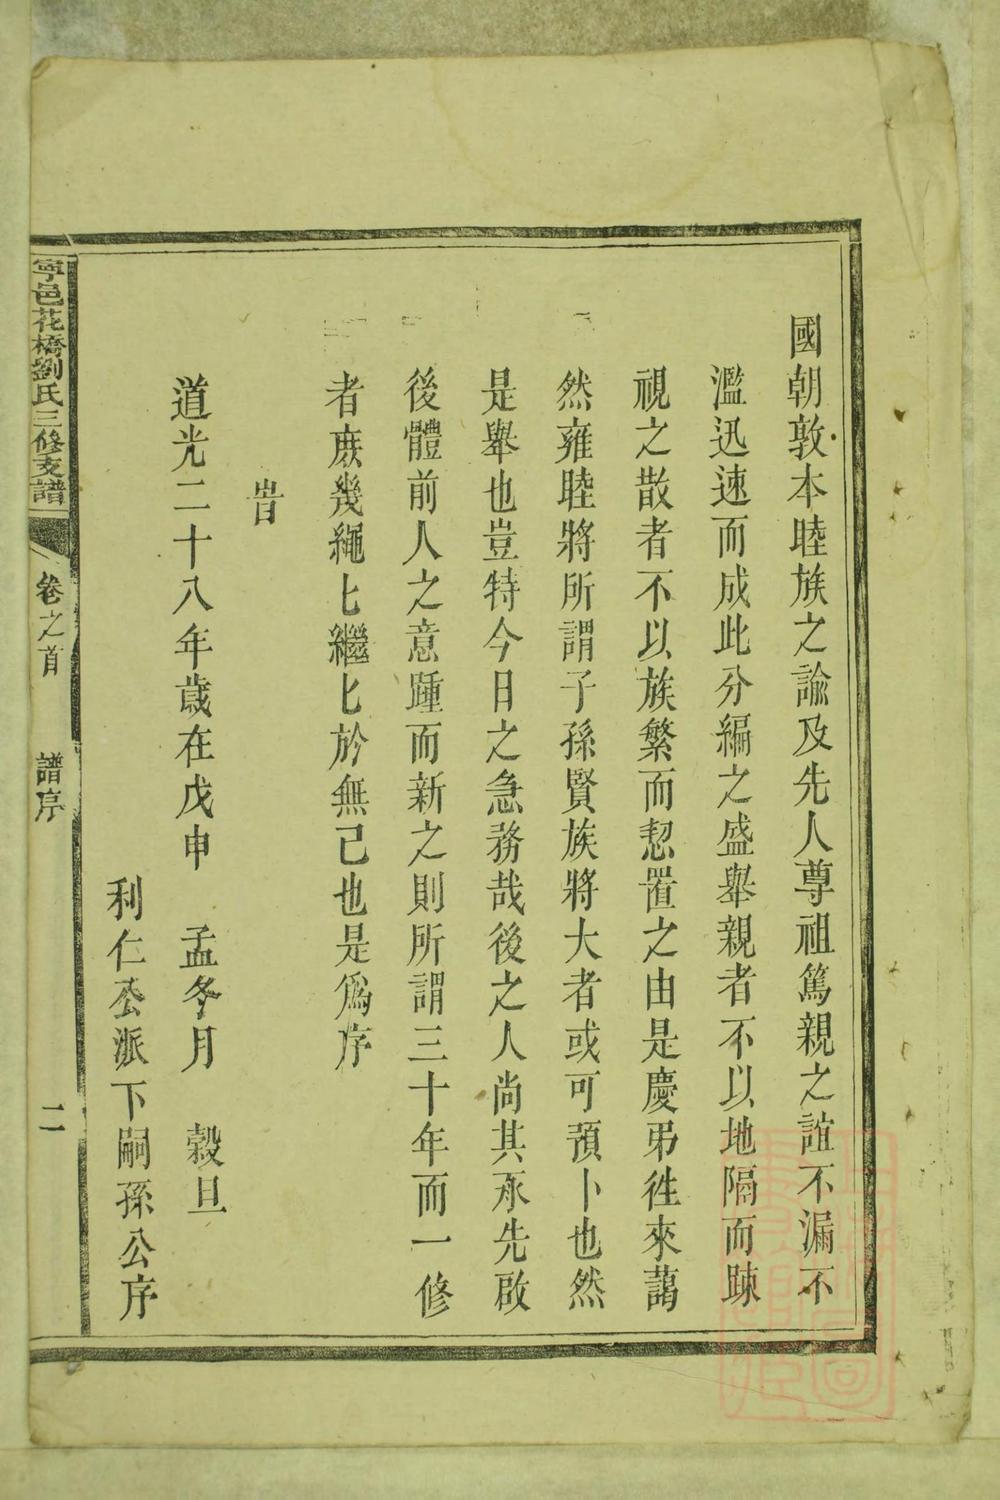 國朝敦本睦族之諭及先人尊祖篤親之誼不漏不
濫迅速而成此分編之盛舉親者不以地隔而踈
視之散者不以族繁而恝置之由是慶弔徃來藹
然雍睦將所謂子孫賢族將大者或可預卜也然
是舉也豈特今日之急務哉後之人尚其承先啟
後體前人之意踵而新之則所謂三十年而一修
者庻幾繩匕繼匕於無己也是爲序
旹
道光二十八年歳在戊申 孟冬月 穀旦
利仁公派下嗣孫公序
寧邑花橋劉氏三修支譜
卷之首
譜序
二